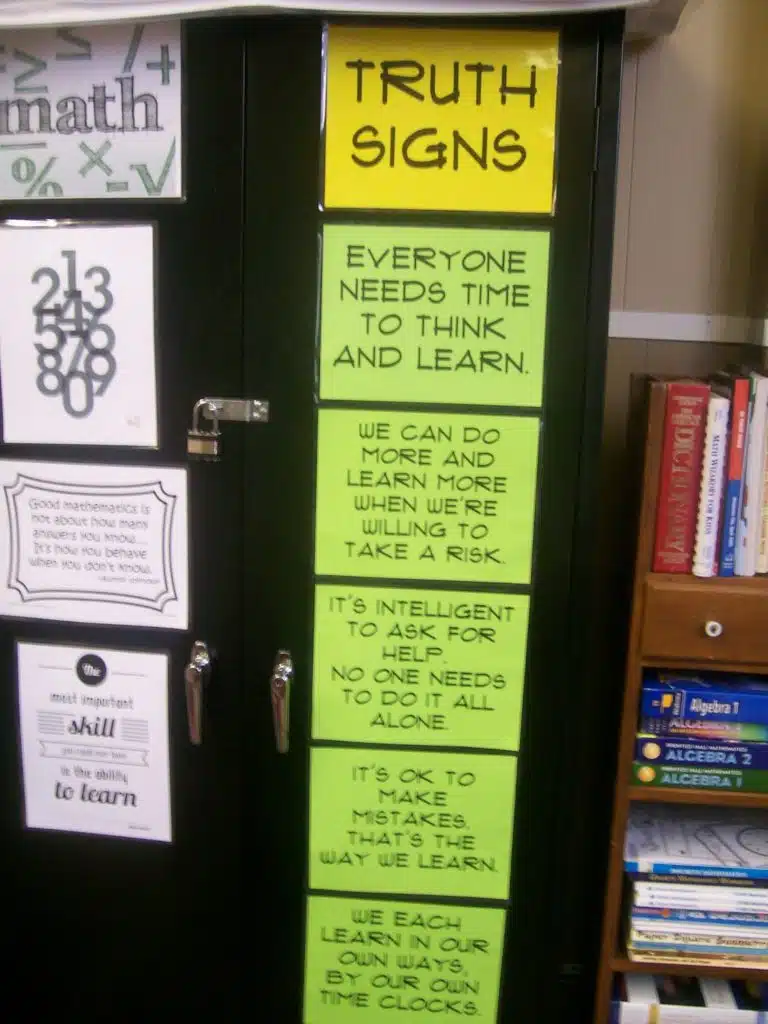 math
TRUTH
SIGNS
EVERYONE
NEEDS TIME
TO THINK
AND LEARN.
WE CAN DO
MORE AND
LEARN MORE
WHEN WE'RE
WILLING TO
TAKE A RISK.
IT'S INTELLIGENT
TO ASK FOR
HELP.
NO ONE NEEDS
TO DO IT ALL
ALONE.
IT'S OK TO
MAKE
MISTAKES.
THAT'S THE
WAY WE LEARN.
WE EACH
LEARN IN OUR
OWN WAYS,
BY OUR OWN
TIME CLOCKS.
1
213
546
7
809
0
Good mathematics is
not about how many
answers you know...
It's how you behave
when you don't know.
The
most important
skill
is the ability
to learn
DICTIONARY
MATH WIZARDRY FOR KIDS
Algebra 1
ALGEBRA
ALGEBRA 2
ALGEBRA 1